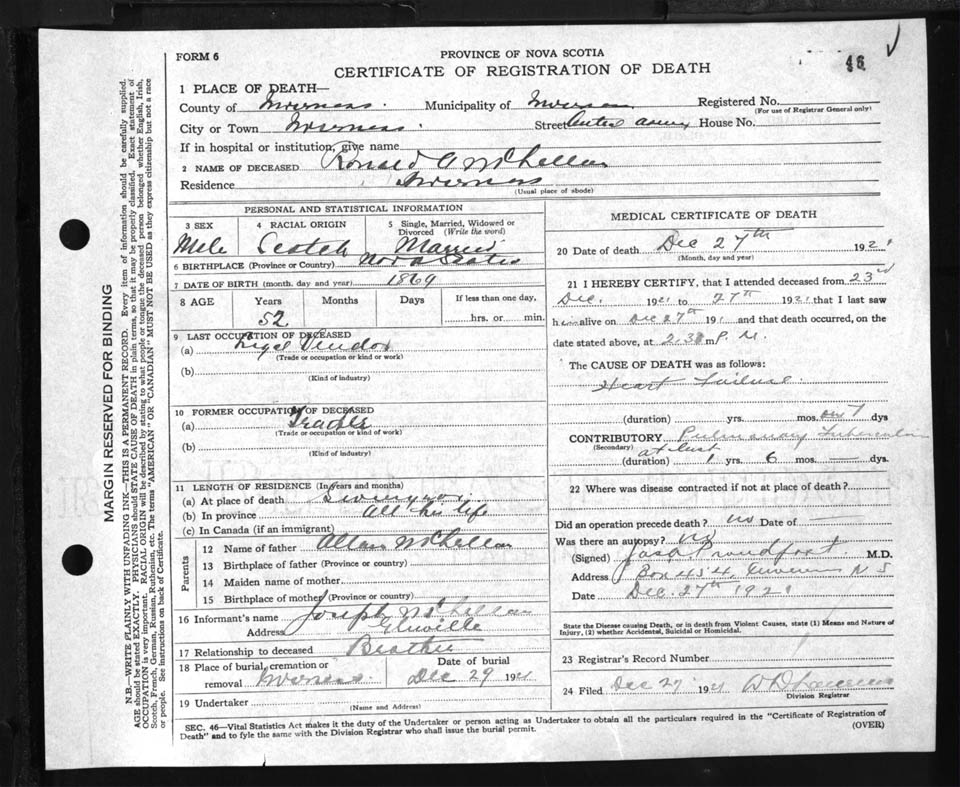 FORM 6
PROVINCE OF NOVA SCOTIA
CERTIFICATE OF REGISTRATION OF DEATH
46
1 PLACE OF DEATH—
County of Inverness. Municipality of Inverness Registered No.
(For use of Registrar General only)
City or Town Inverness. Street Central Avenue House No.
If in hospital or institution, give name
2 NAME OF DECEASED Ronald A McLellan
Residence Inverness
(Usual place of abode)
PERSONAL AND STATISTICAL INFORMATION
3 SEX 4 RACIAL ORIGIN 5 Single, Married, Widowed or Divorced (Write the word)
Male Scotch Married
6 BIRTHPLACE (Province or Country) Nova Scotia
7 DATE OF BIRTH (month, day and year) 1869
8 AGE Years Months Days If less than one day,
52 hrs. or min.
9 LAST OCCUPATION OF DECEASED
(a) Legal Vendor
(Trade or occupation or kind or work)
(b)
(Kind of industry)
10 FORMER OCCUPATION OF DECEASED
(a) Teacher
(Trade or occupation or kind of work)
(b)
(Kind of industry)
11 LENGTH OF RESIDENCE (in Years and months)
(a) At place of death
(b) In province All his life
(c) In Canada (if an immigrant)
Parents
12 Name of father Allan McLellan
13 Birthplace of father (Province or country)
14 Maiden name of mother
15 Birthplace of mother (Province or country)
16 Informant's name Joseph McLellan
Address Glenville
17 Relationship to deceased Brother
18 Place of burial, cremation or removal Inverness. Date of burial Dec 29 1921
19 Undertaker
(Name and Address)
MEDICAL CERTIFICATE OF DEATH
20 Date of death Dec 27th 1921
(Month, day and year)
21 I HEREBY CERTIFY, that I attended deceased from 23rd
Dec. 1921 to 27th 1921 that I last saw
him alive on Dec 27th 191 and that death occurred, on
date stated above, at 2.30 m P.M.
The CAUSE OF DEATH was as follows:
Heart Failure
(duration) yrs. mos. dys
CONTRIBUTORY Pulmonary Tuberculosis
(Secondary) at least
(duration) 1 yrs 6 mos. — dys.
22 Where was disease contracted if not at place of death?
Did an operation precede death? no Date of —
Was there an autopsy? no
(Signed) Jas. Proudfoot M.D.
Address Box 454, Inverness N S
Date Dec. 27th 1921
State the Disease causing Death, or in death from Violent Causes, state (1) Means and Nature of Injury, (2) whether Accidental, Suicidal or Homicidal.
23 Registrar's Record Number
24 Filed Dec 27 1921
Division Registrar
SEC. 46—Vital Statistics Act makes it the duty of the Undertaker or person acting as Undertaker to obtain all the particulars required in the "Certificate of Registration of
Death" and to fyle the same with the Division Registrar who shall issue the burial permit. (OVER)
MARGIN RESERVED FOR BINDING
N.B.—WRITE PLAINLY WITH UNFADING INK—THIS IS A PERMANENT RECORD. Every item of information should be carefully supplied.
AGE should be stated EXACTLY. PHYSICIANS should STATE CAUSE OF DEATH in plain terms, so that it may be properly classified. Exact statement of
OCCUPATION is very important. RACIAL ORIGIN will be described by stating to what people or tongue the deceased person belonged whether English, Irish,
Scotch, French, German, Russian, Ruthenian, etc. The terms "AMERICAN" OR "CANADIAN" MUST NOT BE USED as they express citizenship but not a race
or people. See instructions on back of Certificate.